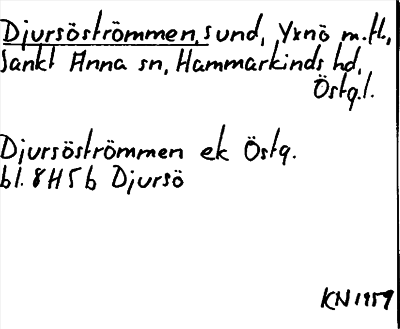 Djursöströmmen, sund, Yxnö m.fl.,
Sankt Anna sn, Hammarkinds hd,
Östg.l.
Djursöströmmen ek Östg.
bl. 8H5b Djursö
KN 1959